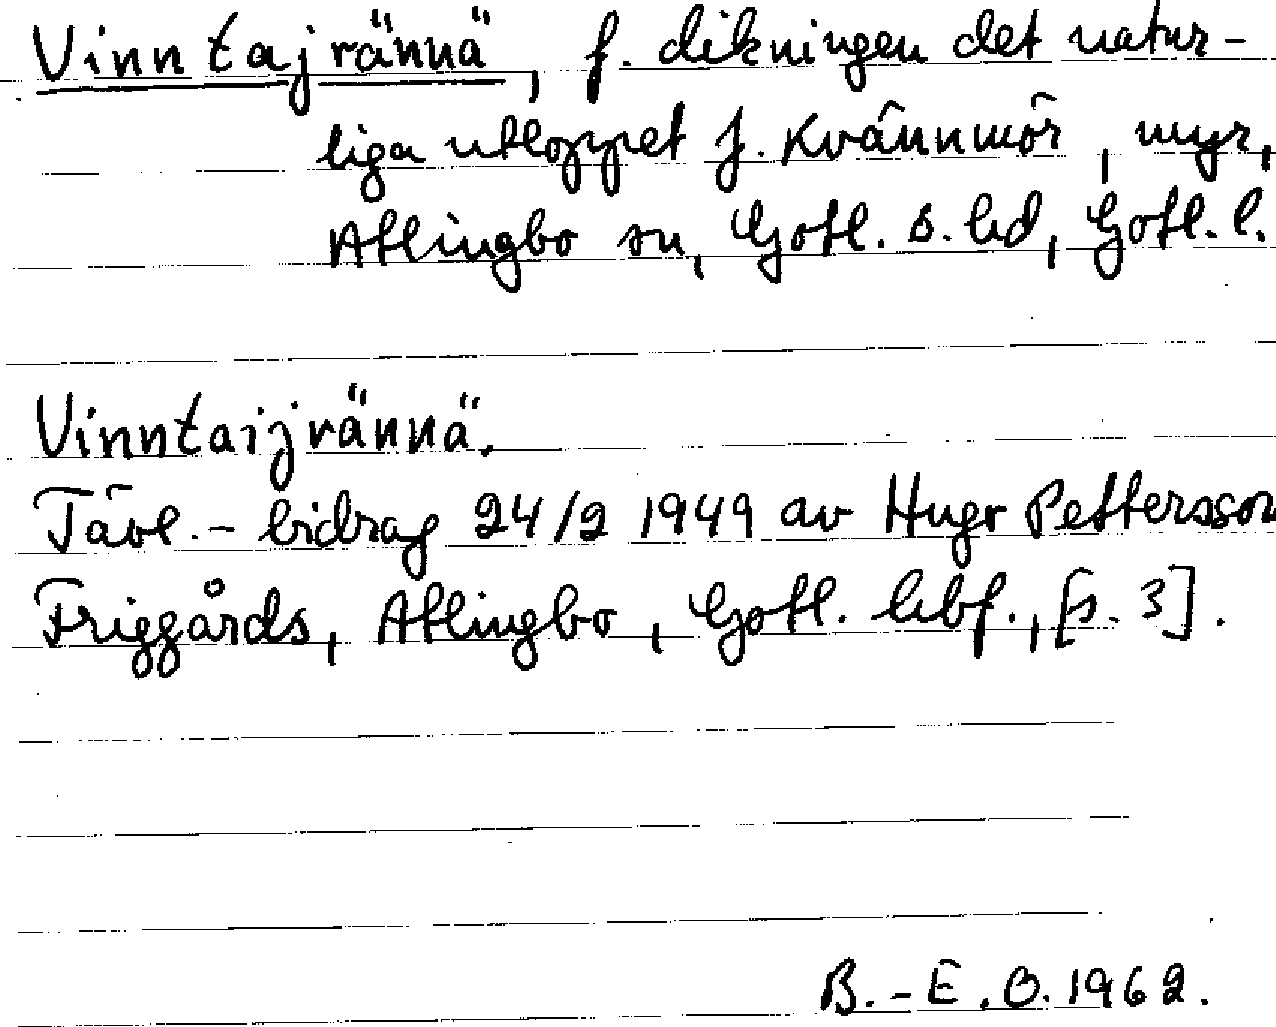 Vinntajrännä, f. dikningen det natur-
liga utloppet f. Kvännmör, myr,
Atlingbo sn, Gotl. s. hd, Gotl. l.
Vinntaijrännä.
Tävl.- bidrag 24/2 1949 av Hugo Pettersson
Friggårds, Atlingbo, Gotl. hbf., [s. 3].
B.-E. O. 1962.